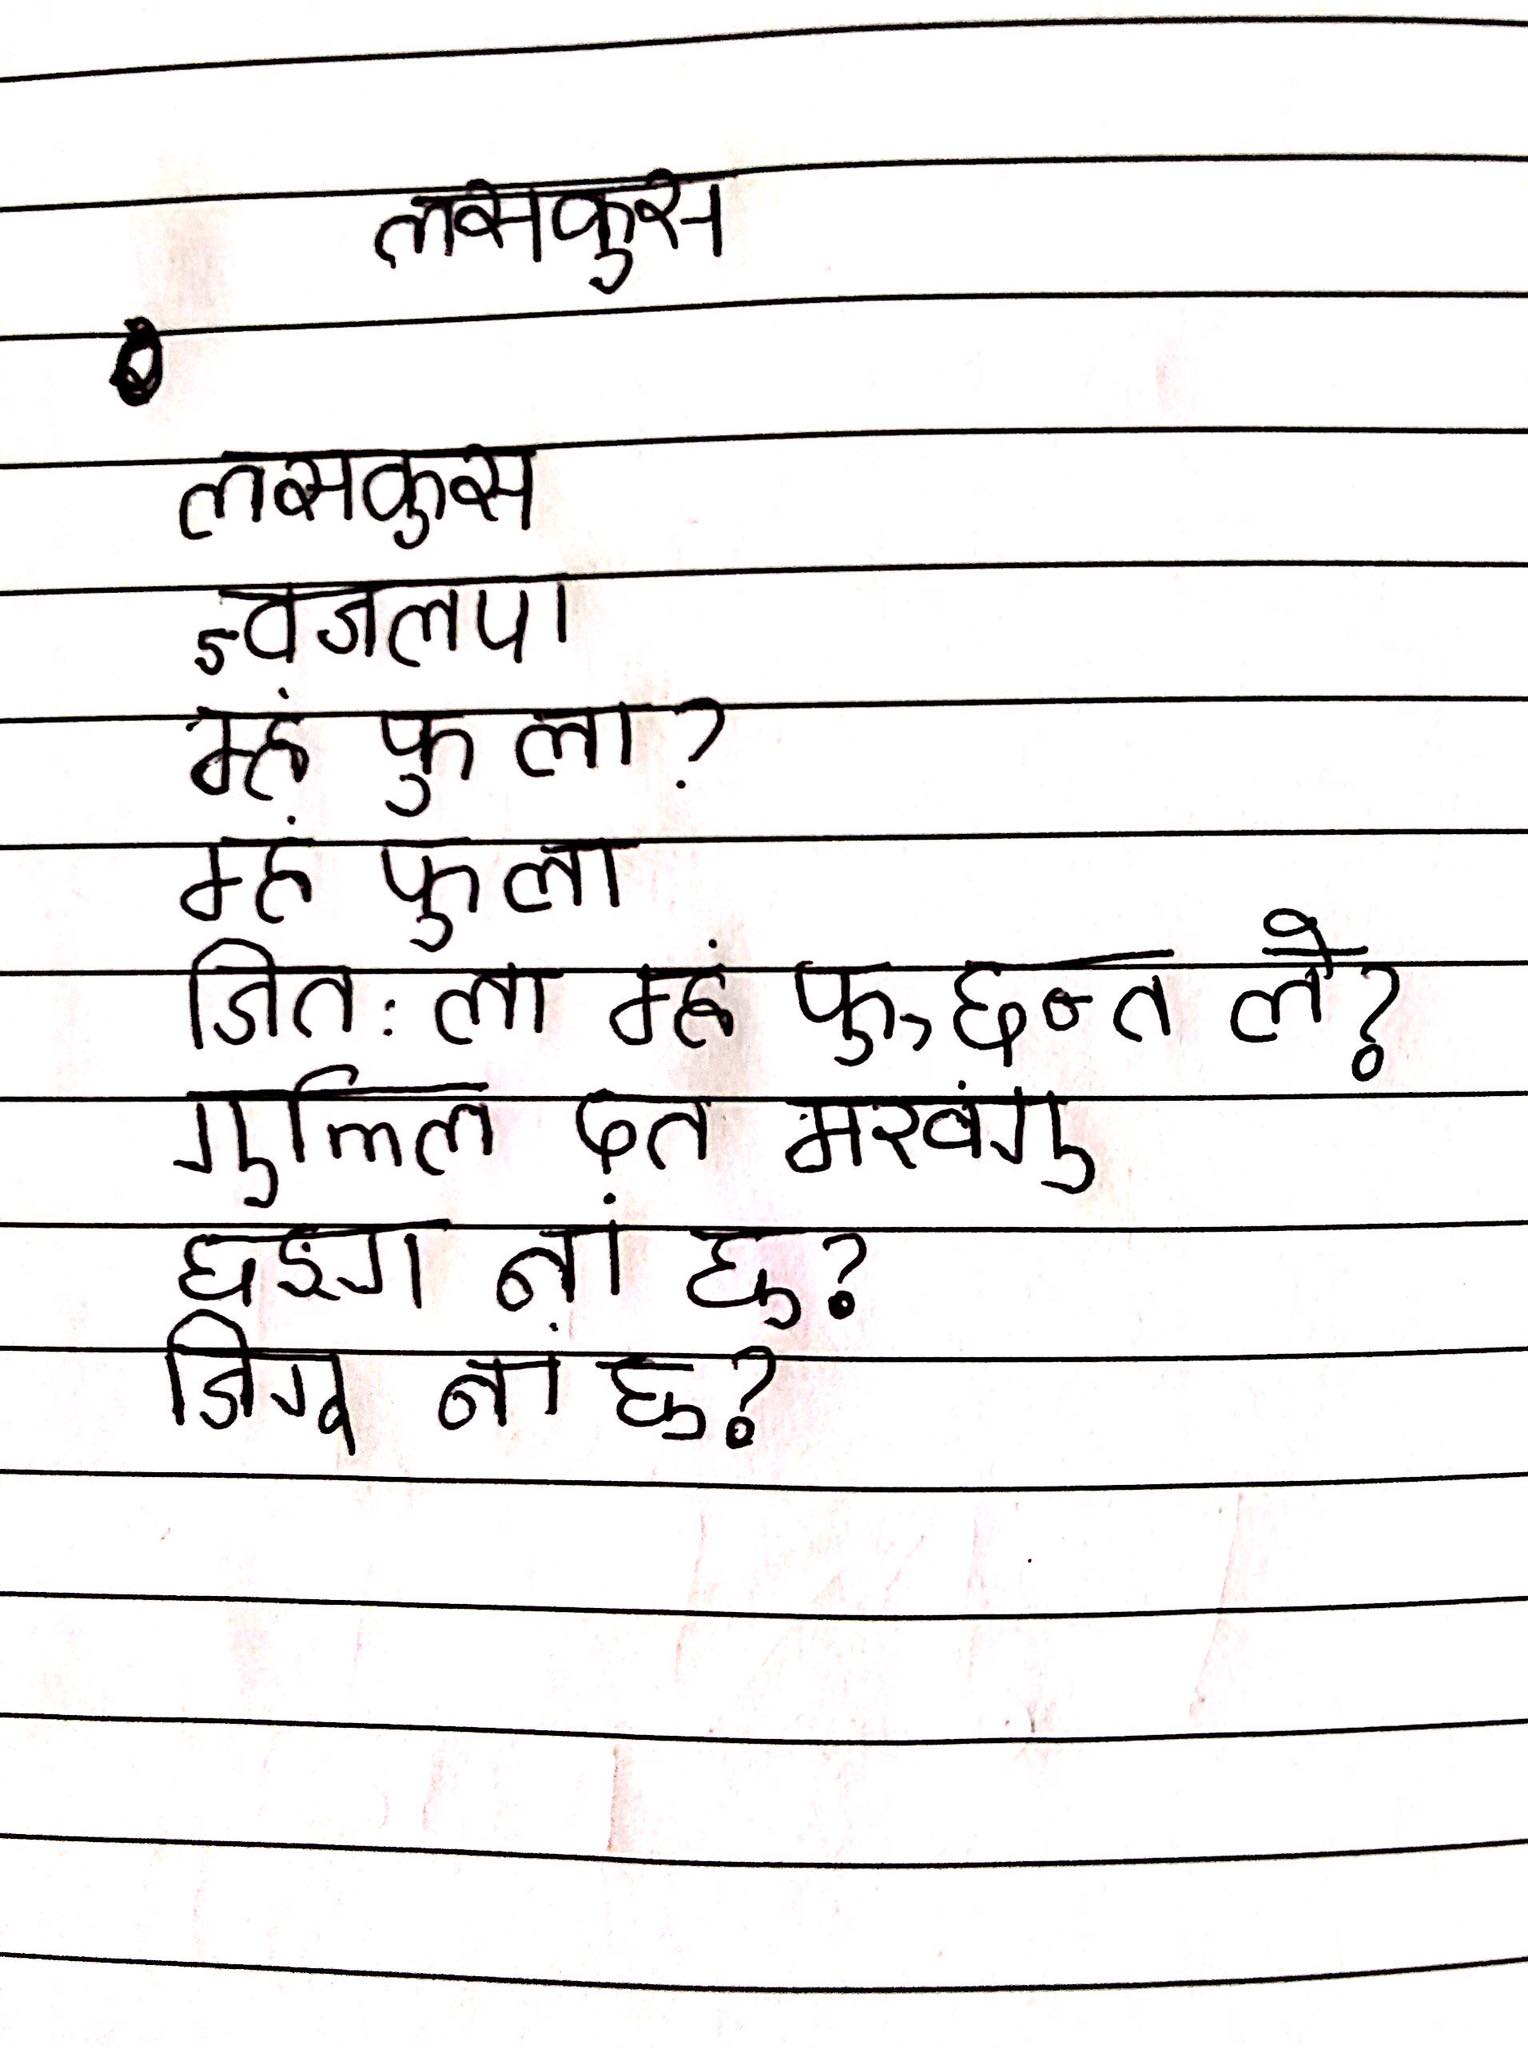 लसकुस
लसकुस
ज्वजलपा
म्हं फु ला?
म्हं फु ला
जित: ला म्हं फु, छन्त लै?
गुलिल दत मखंगु
छङग नां छु?
जिगू नां छु?